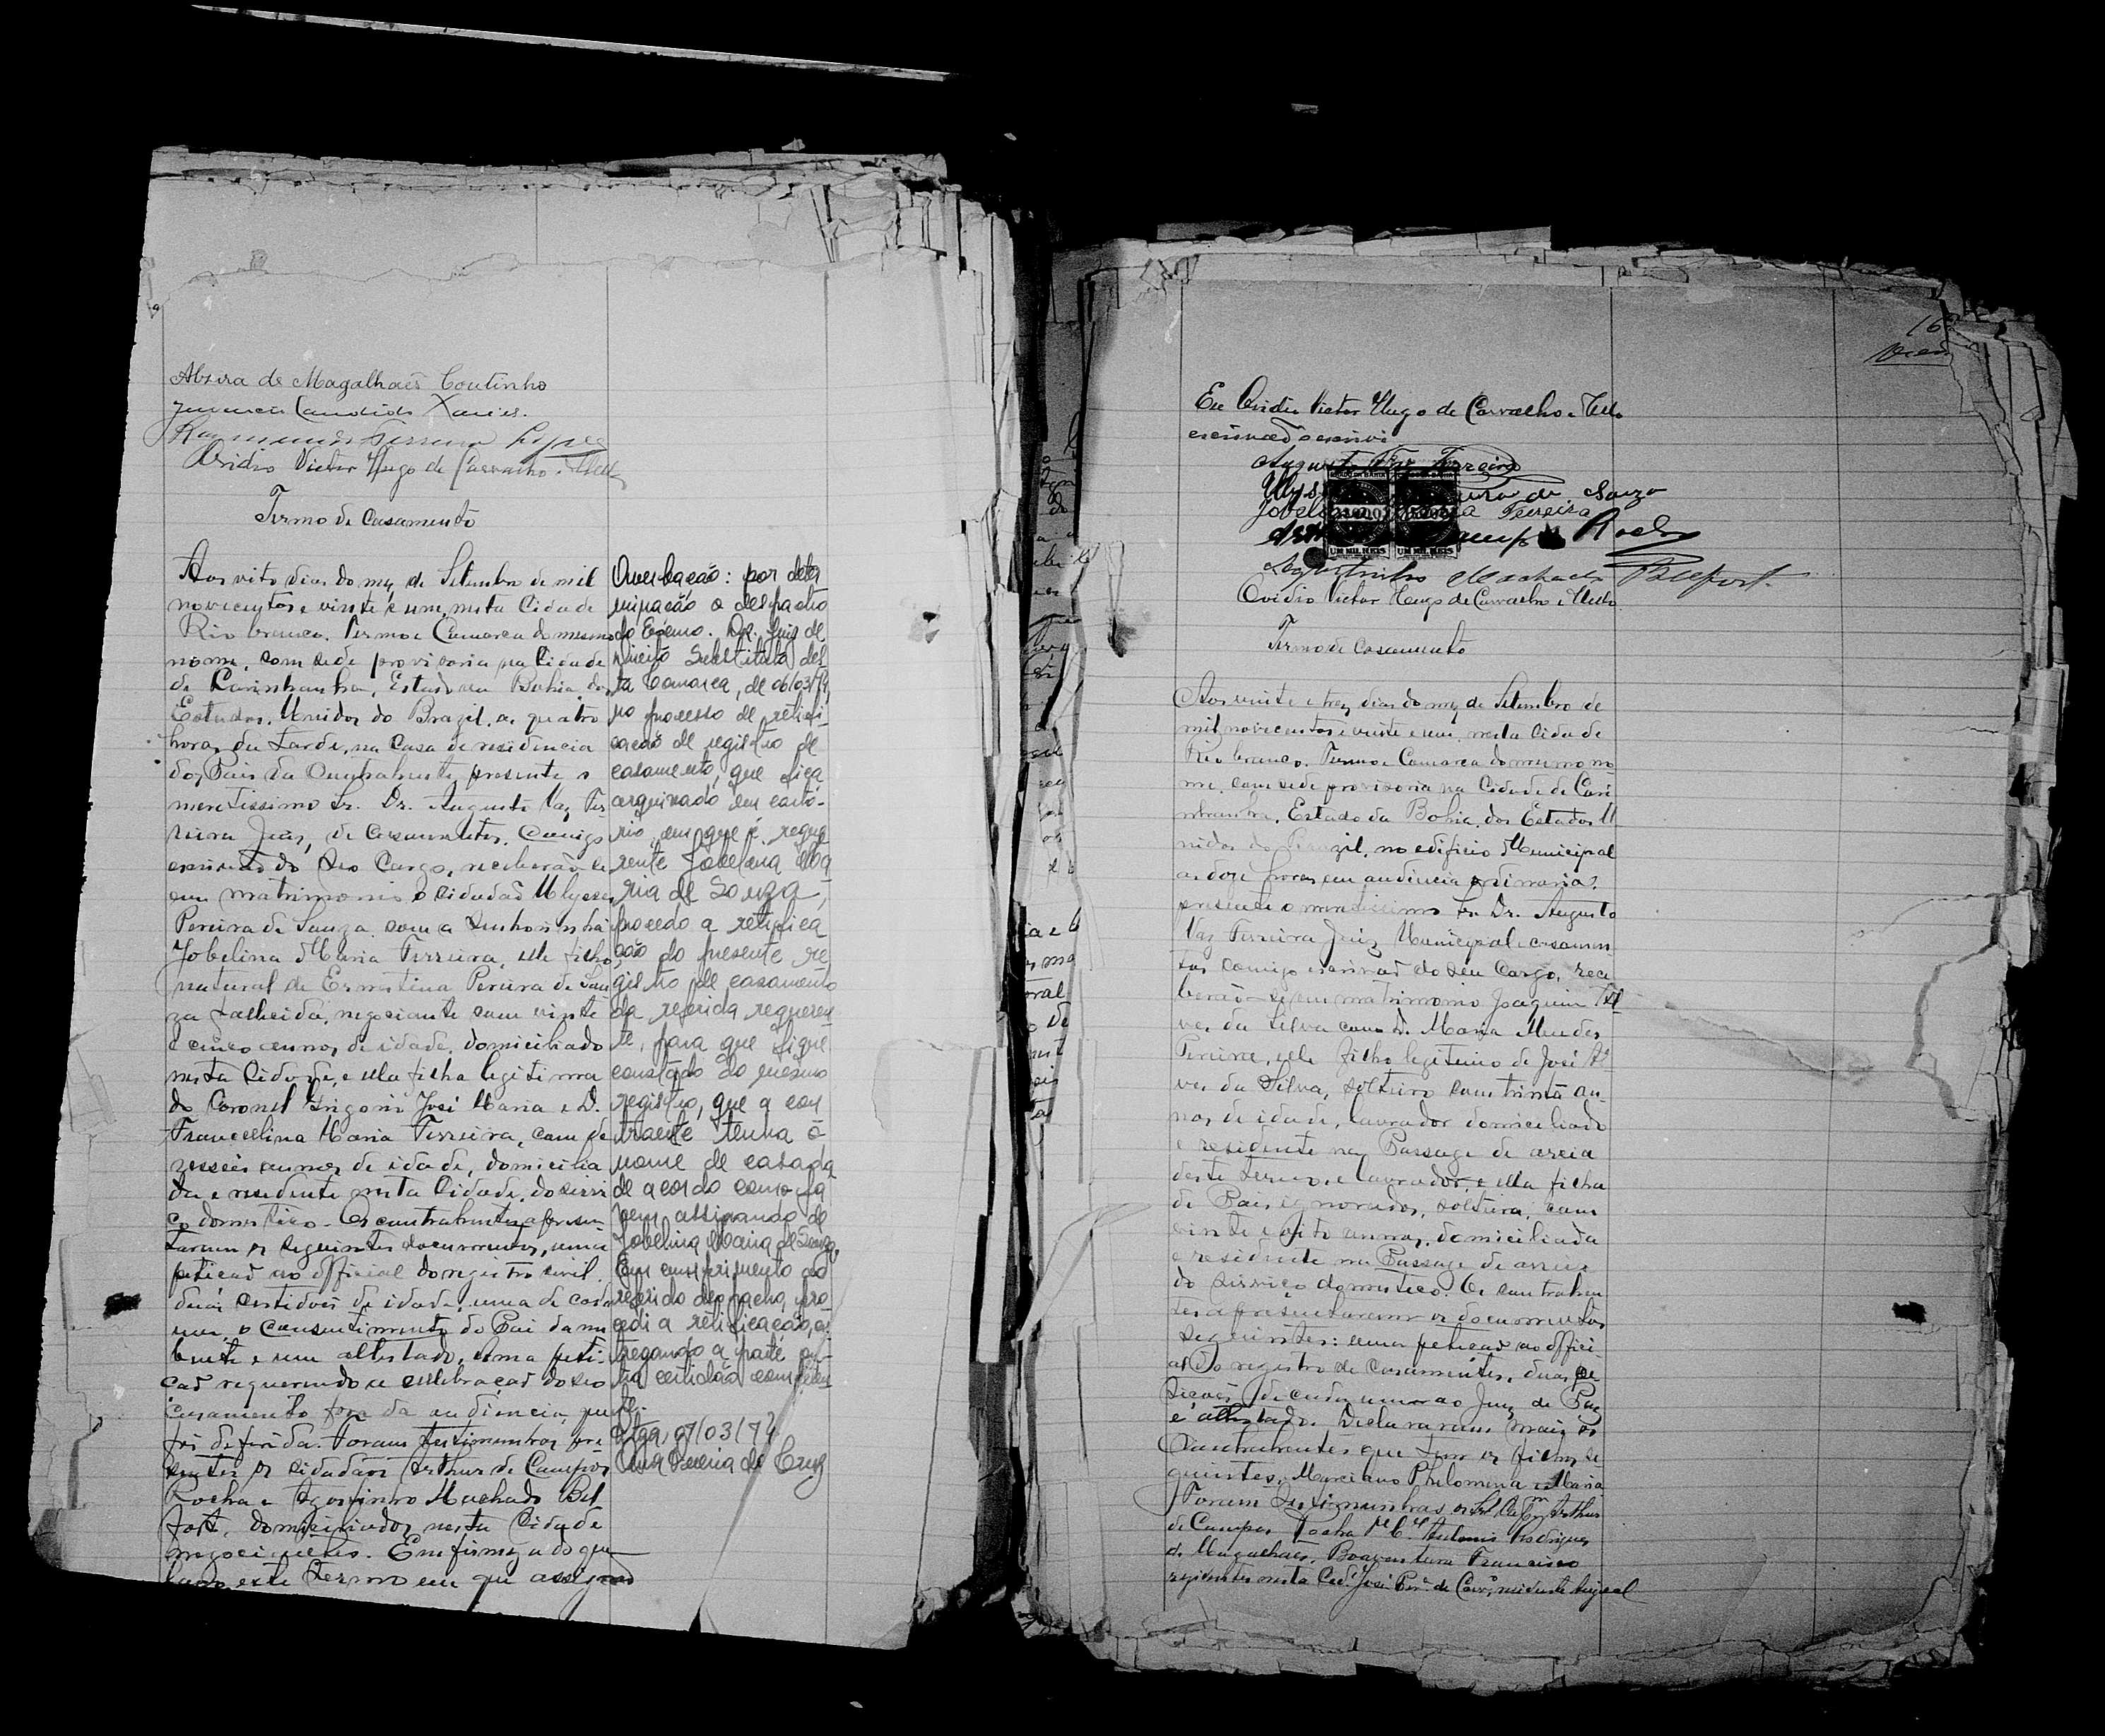 Alzira de Magalhaes Coutinho
Juvencio Candido Xavier.
Raymundo Ferreira Lopes
Ovidio Victor Hugo de Carvalho e Mello
Termo de Casamento
Aos oito dias do mez de Setembro de mil
novecentos e vinte e um, nesta Cidade
Rio branco. Termo e Comarca do mesmo
nome, com sede provisoria na Cidade
de Carinhanha, Estado da Bahia dos
Estados Unidos do Brazil, as quatro
horas da tarde, na casa de residencia
dos Pais da Contrahente, presente o
meretissimo Sr. Dr. Augusto Vaz Fer
reira Juiz, de Casamentos. Comigo
escrivão do seo Cargo, receberão se
em matrimonio o cidadão Ulysses
Pereira de Souza, com a Senhorinha
Jobelina Maria Ferreira, elle filho
natural de Ernestina Pereira de Sou
za fallecida, negociante com vinte
e cinco annos de idade, domiciliado
nesta Cidade, e ella filha legitima
do Coronel José Maria e D.
Francellina Maria Ferreira, com de
zesseis annos de idade, domicilia
da e residente nesta Cidade, do servi
ço domestico. Os contrahentes apresen
taram os seguintes documentos, uma
petição ao official do registro civil,
duas certidões de idade, uma de cada
um, o consentimento do Pai da nu
bente e um attestado, uma peti-
ção requerendo a celebração do seo
casamento fora da audiencia, que
foi deferida. Foram testemunhas pre
sentes os cidadãos Arthur de Campos
Rocha e Agostinho Machado Bel
fort, domiciliados nesta Cidade
negociantes. Em firmeza do que
lavro este termo em que assignão
Averbação: por deter
minação e despacho
do Exmo. Dr. Juiz de
Direito Substituto des
ta Comarca, de 06/03/74,
no processo de retifi
cação de registro de
casamento, que fica
arquivado em cartó-
rio, em que é reque
rente Jobelina Ma
ria de Souza,
procedo a retifica
ção do presente re
gistro de casamento
da referida requeren
te, para que fique
constado do mesmo
registro, que a con
traente tenha o
nome de casada
de acordo como já
vem assinando de
Jobelina Maria de Souza.
Em cumprimento ao
referido despacho, pro
cedi a retificação, en
tregando a parte
certidão competen
te.
07/03/74
Ana Pereira da Cruz
16
Eu Ovidio Victor Hugo de Carvalho e Mello
escrivão o escrivi
Augusto Vaz Ferreira
Ulys de Souza
Jobel Ferreira
Rocha
UM MIL REIS UM MIL REIS
Agostinho Machado Belfort.
Ovidio Victor Hugo de Carvalho e Mello
Termo de Casamento
Aos vinte e trez dias do mez de Setembro de
mil novecentos e vinte e um, nesta Cidade
Rio branco. Termo e Comarca do mesmo no
me, com sede provisoria na Cidade de Cari
nhanha, Estado da Bahia, dos Estados U
nidos do Brazil, no edificio Municipal
as doze horas em audiencia ordinaria,
presente o meretissimo Sr. Dr. Augusto
Vaz Ferreira Juiz Municipal e casamen
tos comigo escrivão do seu Cargo, rece
berão-se em matrimonio Joaquim Al
ves da Silva com D. Maria Mendes
Pereira, elle filho legitimo de José Al
ves da Silva, solteiro com trinta an-
nos de idade, lavrador domiciliado
e residente na Passage de areia
deste termo, e lavrador, e ella filha
de Pais ignorados, solteira, com
vinte e oito annos, domiciliada
e residente na Passage de areia
do serviço domestico. Os contrahen
tes apresentaram os documentos
seguintes: uma petição ao offici
al do registro de casamentos, duas pe
tições de cada um ao Juiz de Paz
e attestado. Declararam mais os
Contrahentes que tem os filhos se
guintes, Marciano Philomena e Maria
Foram testemunhas os Srs. Arthur
de Campos Rocha Antonio Rodrigues
de Magalhães, Boaventura Francisco
residentes nesta Cide. José Perª de Carvº, residente